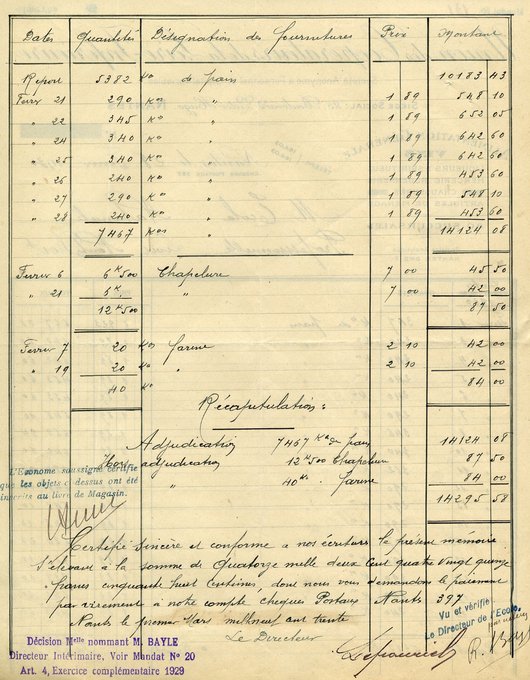 Dates Quantités Désignation des fournitures Prix Montant
Report 5382 Kos de pain 10183 43
Fevrier 21 290 Kos " 1 89 548 10
" 22 345 Kos " 1 89 652 05
" 24 340 Kos " 1 89 642 60
" 25 340 Kos " 1 89 642 60
" 26 240 Kos " 1 89 453 60
" 27 290 Kos " 1 89 548 10
" 28 240 Kos " 1 89 453 60
7467 Kos 14124 08
Fevrier 6 6 K 500 Chapelure 7 00 45 50
" 21 6 K. " 7 00 42 00
12 K 500 87 50
Fevrier 7 20 Kos farine 2 10 42 00
" 19 20 Kos " 2 10 42 00
40 Kos 84 00
Récapitulation :
Adjudication 7467 Kos de pain 14124 08
Hors adjudication 12 K 500 Chapelure 87 50
" 40 Kos farine 84 00
14295 58
L'Econome soussigné certifie
que les objets ci dessus ont été
inscrits au livre de Magasin.
Certifié sincère et conforme a nos écritures le présent mémoire
s'élevant à la somme de Quatorze mille deux Cent quatre vingt quinze
francs cinquante huit Centimes, dont nous vous demandons le paiement
par virement à notre compte cheques Postaux Nantes 397
Nantes le premier Mars mil neuf cent trente
Le Directeur
Vu et vérifié
Le Directeur de l'Ecole,
R. Bayle
Décision Melle nommant M. BAYLE
Directeur Intérimaire, Voir Mandat No 20
Art. 4, Exercice complémentaire 1929